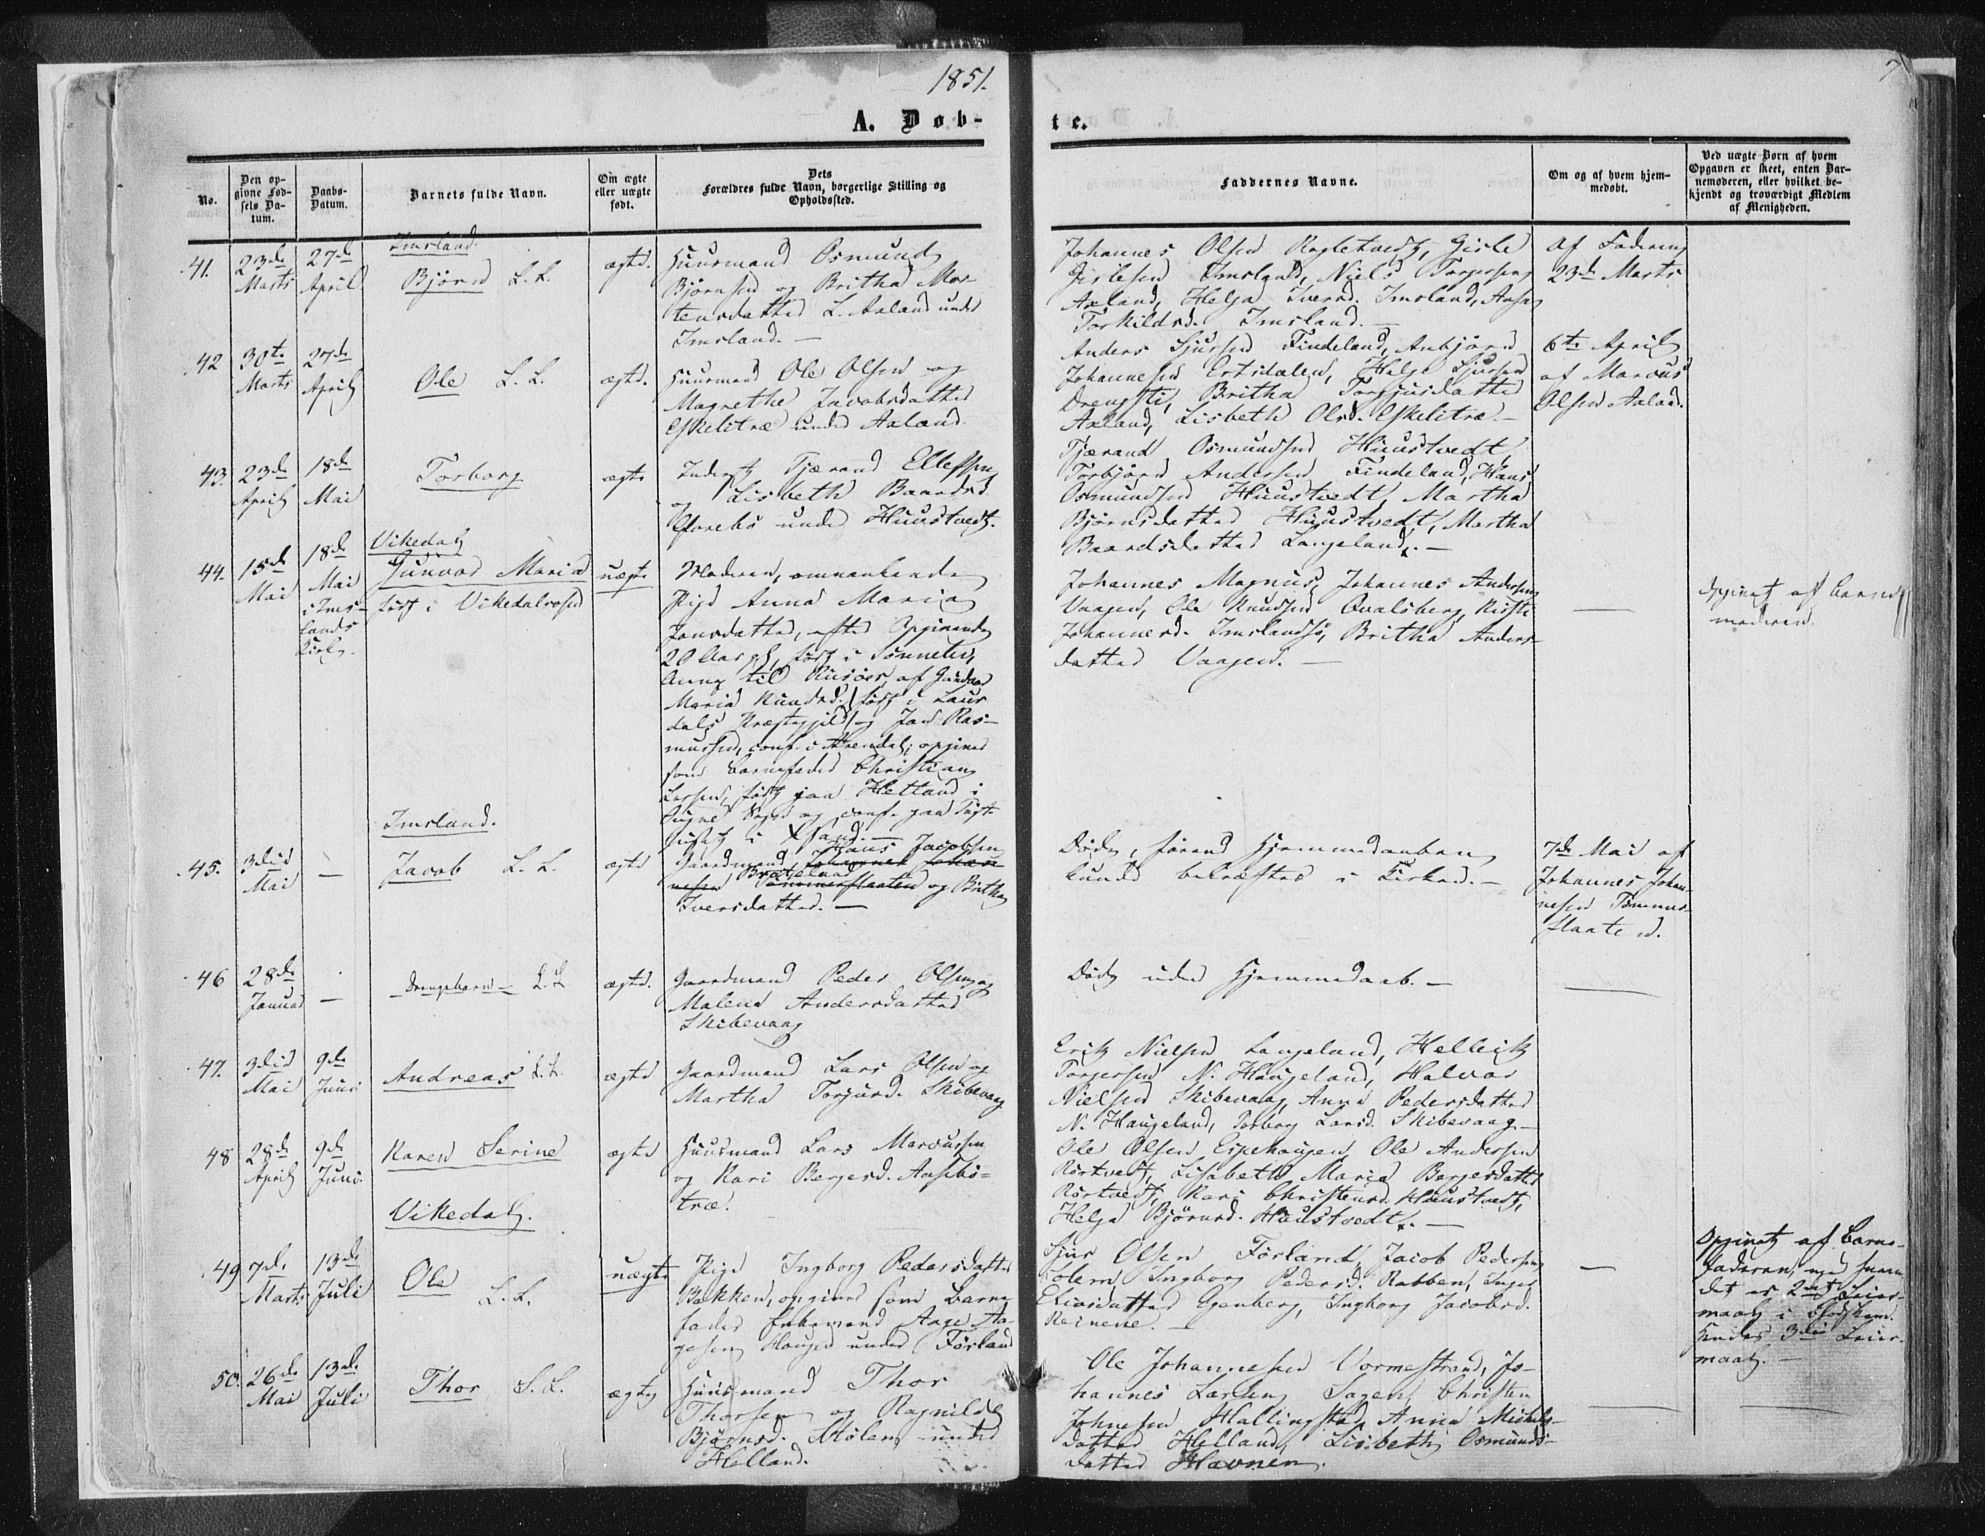 1851.
7
A. Døb-
te.
No.
Den op-
givne Fød-
sels Da-
tum.
Daabs-
Datum.
Barnets fulde Navn.
Om ægte
eller uægte
født.
Dets
Forældres fulde Navn, borgerlige Stilling og
Opholdssted.
Faddernes Navne.
Om og af hvem hjem-
medøbt.
Ved uægte Børn af hvem
Opgaven er skeet, enten Bar-
nemoderen, eller hvilket be-
kjendt og troværdigt Medlem
af Menigheden.
Imsland.
41.
23de
Marts
27de
April
Bjørn L. L.
ægte.
Huusmand Osmund
Bjørnsen og Britha Mor-
tensdatter L. Aaland under
Imsland. —
Johannes Olsen Gisle
Gislesen Imsland, Niels Torgersen
Axland, Helga Iversd. Imsland, Aasa
Torkildsd. Imsland. —
af Faderen
23de Marts
42
30te
Marts
27de
April
Ole L. L.
ægte.
Huusmand Ole Olsen og
Magrethe Jacobsdatter
Eskelitræ under Aaland.
Anders Sjursen Findeland, Anbjørn
Johannesen Ertsdalen, Helge Sjursen
Drengsti, Britha Torgjusdatter
Axland, Lisbeth Olsd. Eskelitræ. —
6te April
af Marcus
Olsen Aaland.
43.
23de
April
18de
Mai
Torborg
ægte
Inderst Tjærand Ellefsen
og Lisbeth Baardsd.
under Huustvedt.
Tjærand Osmundsen Huustvedt,
Torbjørn Andersen Findeland, Hans
Osmundsen Huustvedt, Martha
Bjørnsdatter Huustvedt, Martha
Baardsdatter Langeland. —
Vikedal
44.
15de
Mai
18de
Mai
i Ims-
lands
Kirke.
Gunvor Maria
født i Vikedalsosen
uægte
Moderen, omvankende
Pige Anna Maria
Jonsdatter, efter Opgivende
20 Aar gl., født i
til Riisøer, af Gundvor
Maria Knudsd. (født i Laur
dals Præstegjeld) og Jon Ras-
mussen, conf. i Arendal; opgiver
som Barnefader Christian
Larsen, født paa Hetland i
Sogn og conf. paa Tugt-
huset i Xsand. —
Johannes Magnus, Johannes Andersen
Vaagen, Ole Knudsen Qvalsberg, Kirsti
Johannesd. Imslandsø, Britha Anders-
datter Vaagen. —
—
Opgivet af Barne-
moderen.
Imsland.
45.
3die
Mai
—
Jacob L. L.
ægte
Gaardmand Hans Jacobsen
Johannes Johan-
nesen Brateland Tømmerflaaten og Britha
Iversdatter. —
Døde, førend Hjemmedaaben
kunde bekræftes i Kirken. —
7de Mai af
Johannes Johan-
nesen Tømmer-
flaaten.
46
28de
Januar
—
Drengebarn L. L.
ægte.
Gaardmand Peder Olsen og
Malena Andersdatter
Skibevaag
Døde uden Hjemmedaab. —
—
47.
3die
Mai
9de
Juni
Andreas L. L.
ægte
Gaardmand Lars Olsen og
Martha Torjusd. Skibevaag
Erik Nielsen Langeland, Hellek
Torgersen N. Haugeland, Halvor
Nielsen Skibevaag, Anna Pedersdatter
N. Haugeland, Torborg Larsd. Skibevaag. —
48
28de
April
9de
Juni.
Karen Serine
ægte
Huusmand Lars Marcussen
og Kari Bergersd. Aasebø-
træ.
Ole Olsen Espehaugen, Ole Andersen
Rørtvedt, Lisabeth Maria Bergersdatter
Rørtvedt, Kari Christensd. Huustvedt,
Helga Bjørnsd. Huustvedt. —
Vikedal.
49
7de
Marts
13de
Juli
Ole
L. L.
uægte
Pige Ingborg Pedersdatter
Bakken, opgiver som Barne-
fader Enkemand Aage Aa-
gesen Haugen under Førland
Sjur Olsen Førland, Jacob Pedersen
Holem, Ingborg Pedersd. Rabben, Inger
Eliasdatter Egenberg, Ingborg Jacobsd.
Reinene —
—
Opgivet af Barne-
faderen, med hvem
det er 2det Leier-
maal i
Hendes 3die Leier-
maal. —
50.
26de
Mai
13de
Juli
Thor L. L.
ægte
Huusmand Thor
Thorsen og Ragnilde
Bjørnsd. Mølen under
Helland.
Ole Johannesen Vormestrand, Jo-
hannes Larsen Sagen, Christen
Johnesen Hallingstad, Anna Michels-
datter Helland, Lisbeth Osmunds-
datter Havnen.
—
—